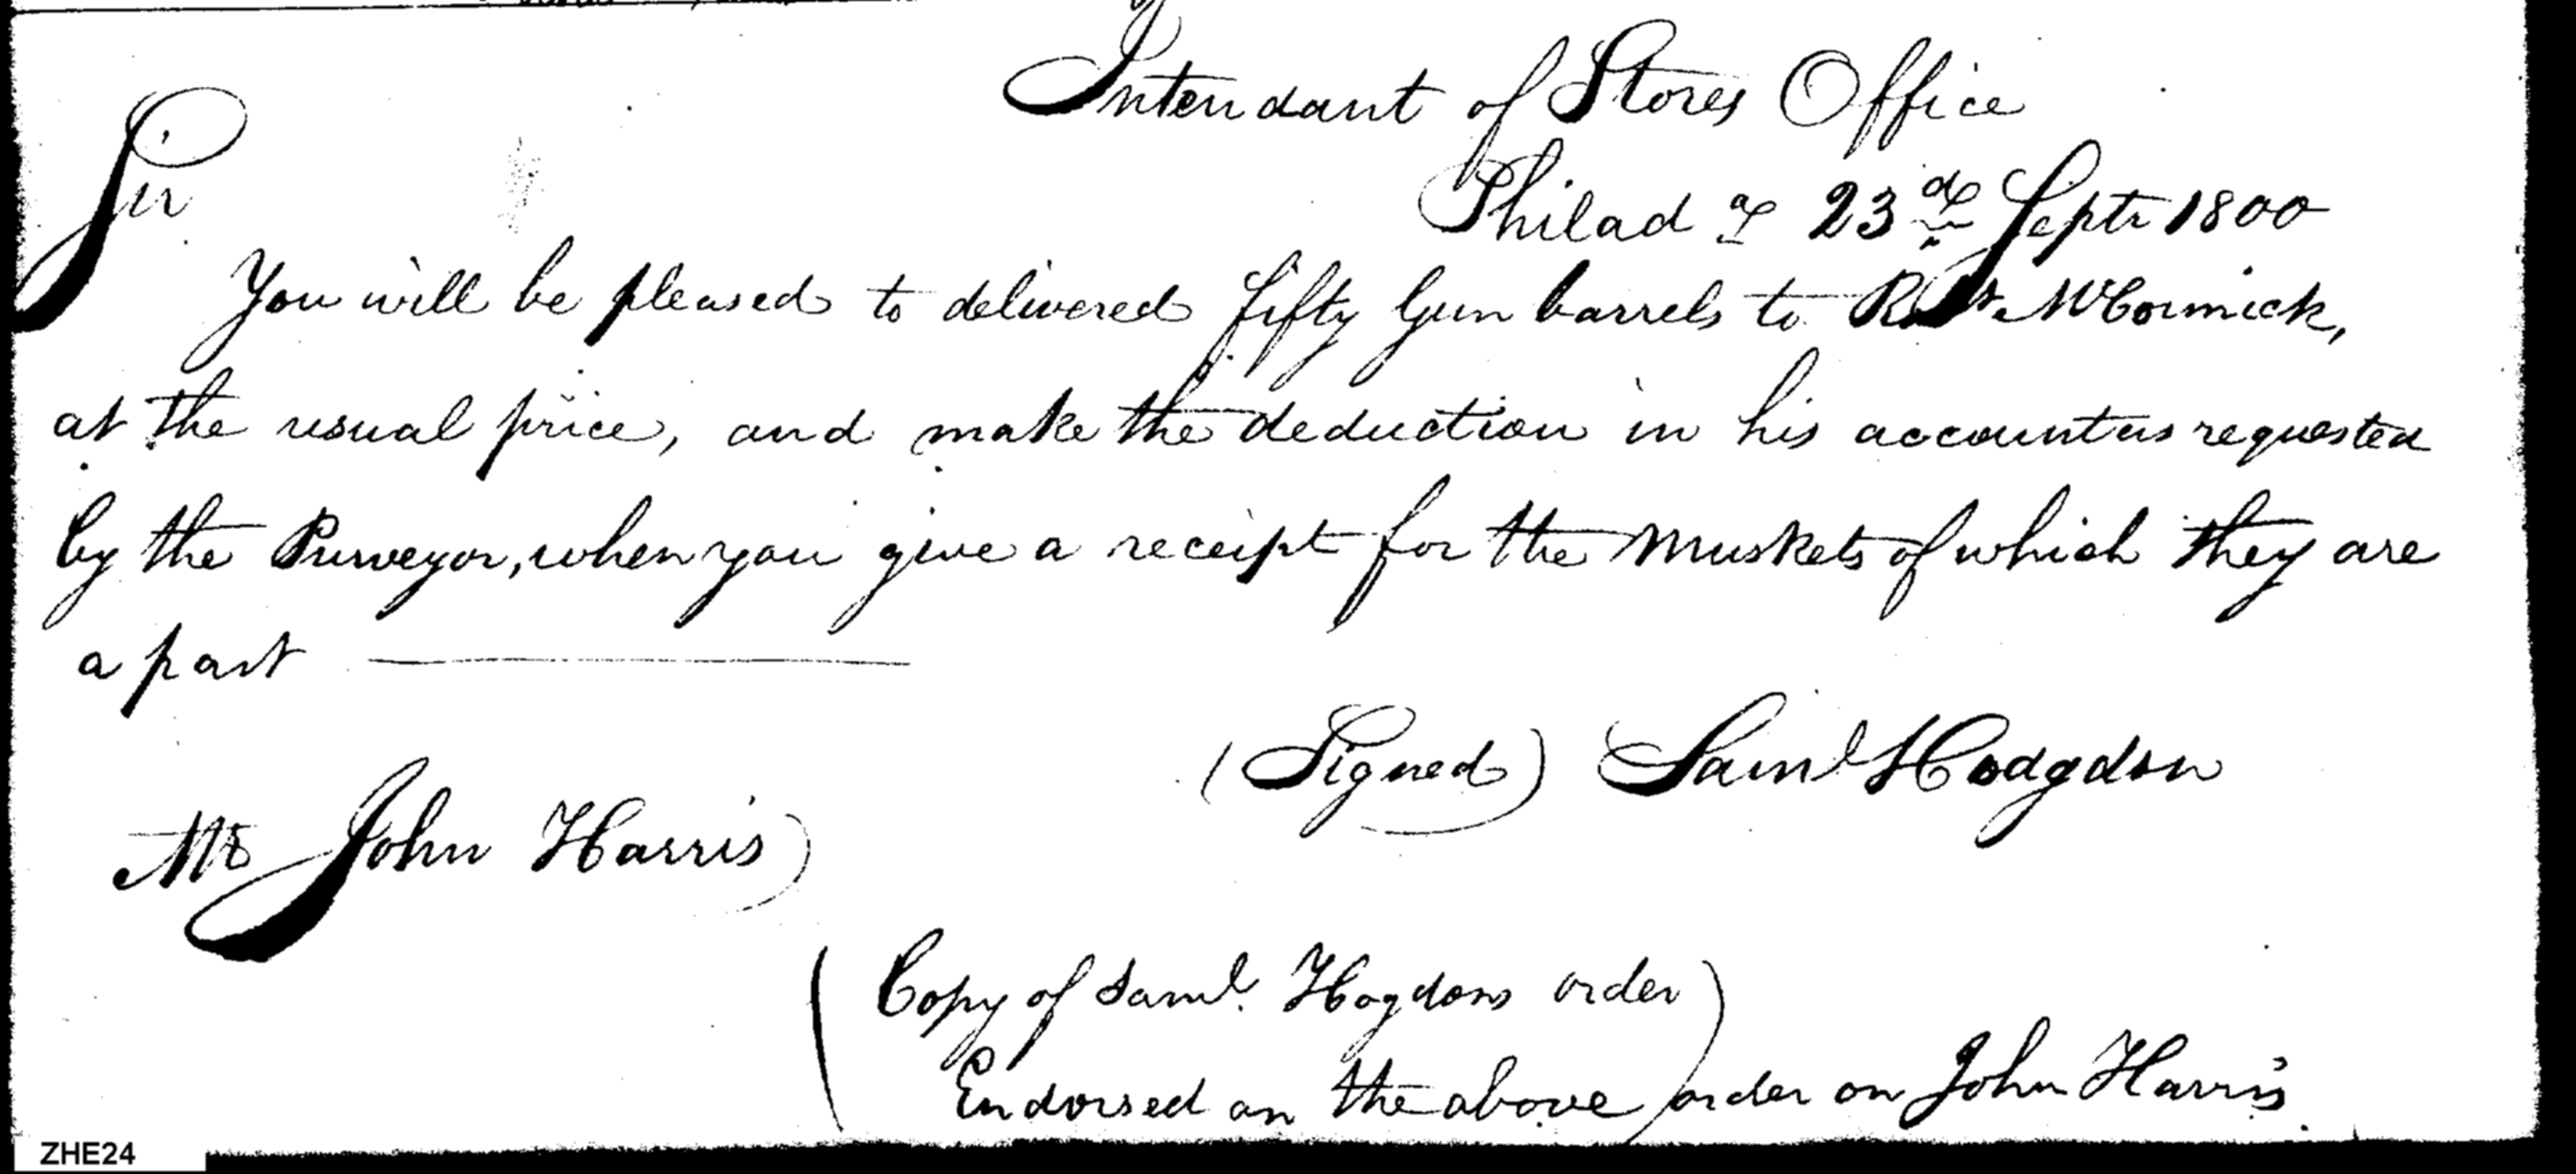 Intendant of Stores Office
Philada 23d Septr 1800
Sir
You will be pleased to delivered fifty Gun barrels to Robt. McCormick,
at the usual price, and make the deduction in his account as requested
by the Purveyor, when you give a receipt for the Muskets of which they are
a part
(Signed) Saml Hodgdon
Mr John Harris
(Copy of Saml. Hogdons order)
Endorsed on the above order on John Harris
ZHE24